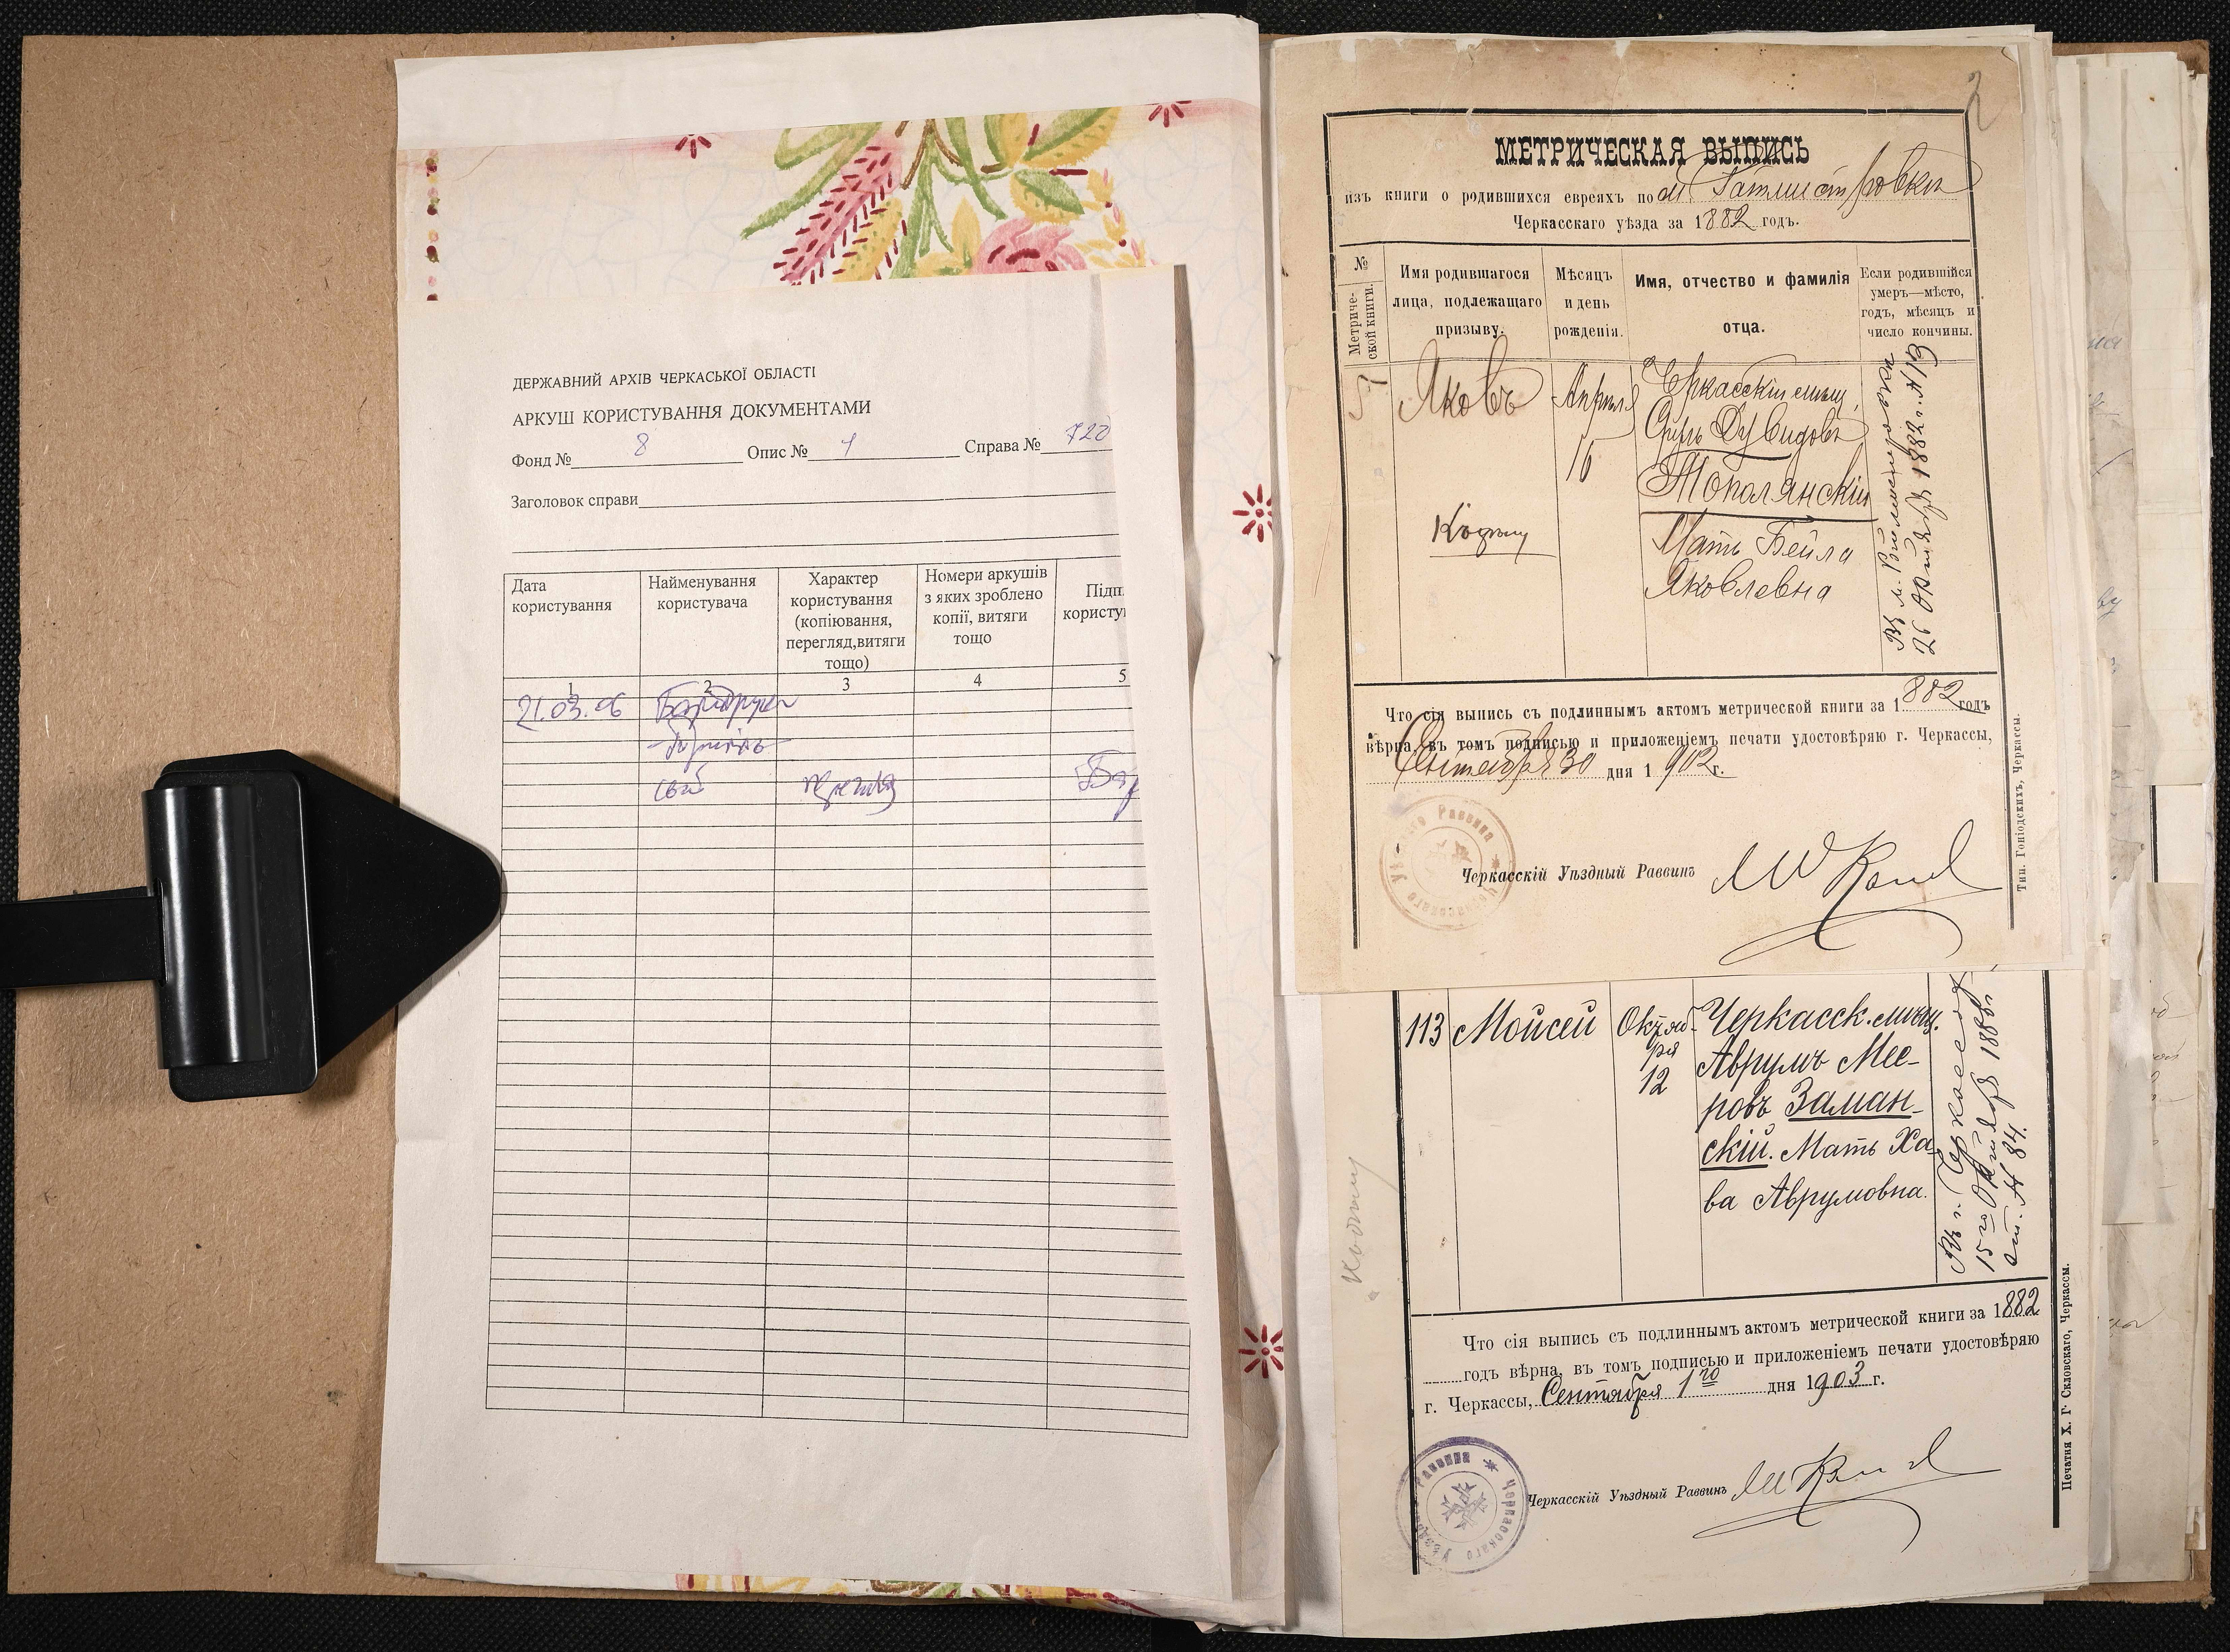 ДЕРЖАВНИЙ АРХІВ ЧЕРКАСЬКОЇ ОБЛАСТІ
АРКУШ КОРИСТУВАННЯ ДОКУМЕНТАМИ
Фонд № 8 Опис № 1 Справа № 720
Заголовок справи
Дата користування
Найменування користувача
Характер користування (копіювання, перегляд,витяги тощо)
Номери аркушів з яких зроблено копії, витяги тощо
Підп
користу
1 2 3 4 5
21.03.06
2
МЕТРИЧЕСКАЯ ВЫПИСЬ
изъ книги о родившихся евреяхъ по м.
Черкасскаго уѣзда за 1882 годъ.
№ Метрической книги.
Имя родившагося лица, подлежащаго призыву.
Мѣсяцъ и день рожденія.
Имя, отчество и фамилія отца.
Если родившійся умеръ—мѣсто, годъ, мѣсяцъ и число кончины.
57 Яковъ Апрѣля 16
Черкасскій мѣщ.
Дувидовъ
Тополянскій
Мать Бейла
Яковлевна
26 Октября 1882 г. № 19
Что сія выпись съ подлиннымъ актомъ метрической книги за 1882 годъ
вѣрна, въ томъ подписью и приложеніемъ печати удостовѣряю г. Черкассы,
Сентября 30 дня 1902 г.
Черкасскій Уѣздный Раввинъ
Тип. Гоніодскихъ, Черкассы.
113 Мойсей Октября 12
Черкасск. мѣщ.
Аврумъ Мее-
ровъ Заман-
скій. Мать Ха-
ва Аврумовна.
Въ г. Черкассахъ
15го Октября 188
ст. № 84.
Что сія выпись съ подлиннымъ актомъ метрической книги за 1882
годъ вѣрна, въ томъ подписью и приложеніемъ печати удостовѣряю
г. Черкассы, Сентября 1го дня 1903 г.
Черкасскій Уѣздный Раввинъ
Печатня Х. Г. Скловскаго, Черкассы.